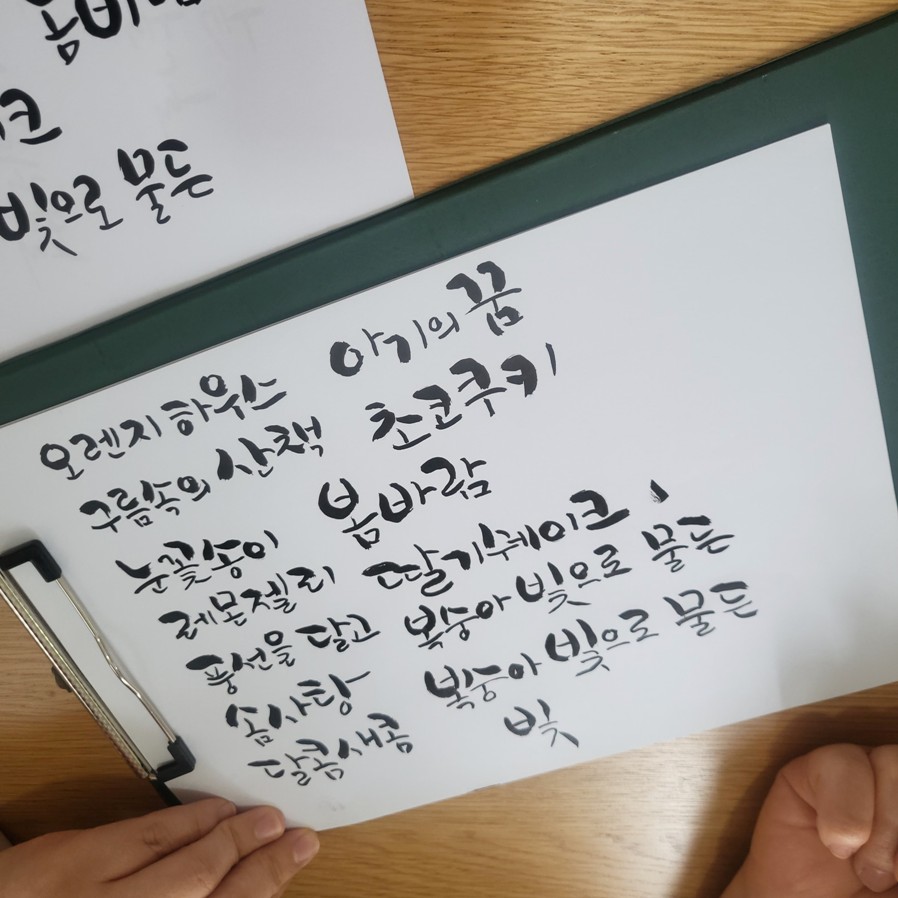 빛으로 물든
오렌지 하우스 아기의 꿈
구름속의 산책 초코쿠키
눈꽃송이 봄바람
레몬젤리 딸기쉐이크
풍선을 달고 복숭아 빛으로 물든
솜사탕 복숭아 빛으로 물든
달콤새콤 빛